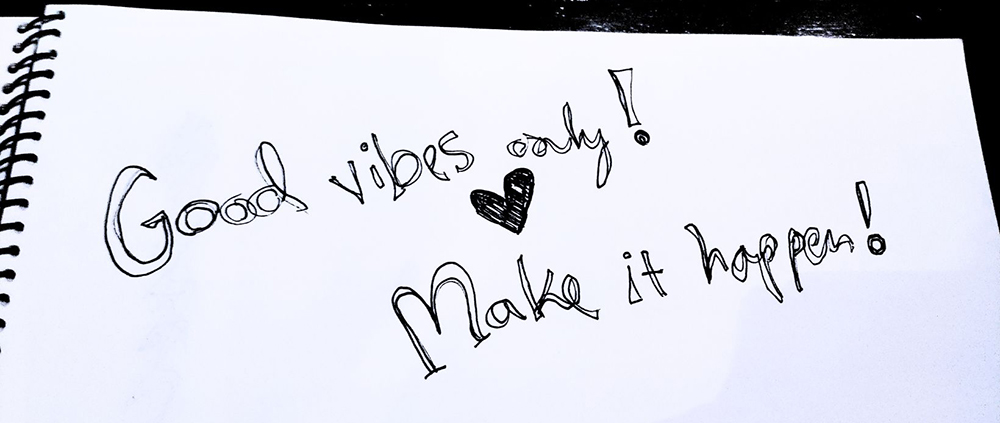 Good vibes only!
Make it happen!